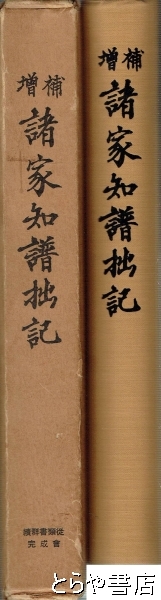 補
増
諸家知譜拙記
續群書類從
完成會
補
増
諸家知譜拙記
とらや書店